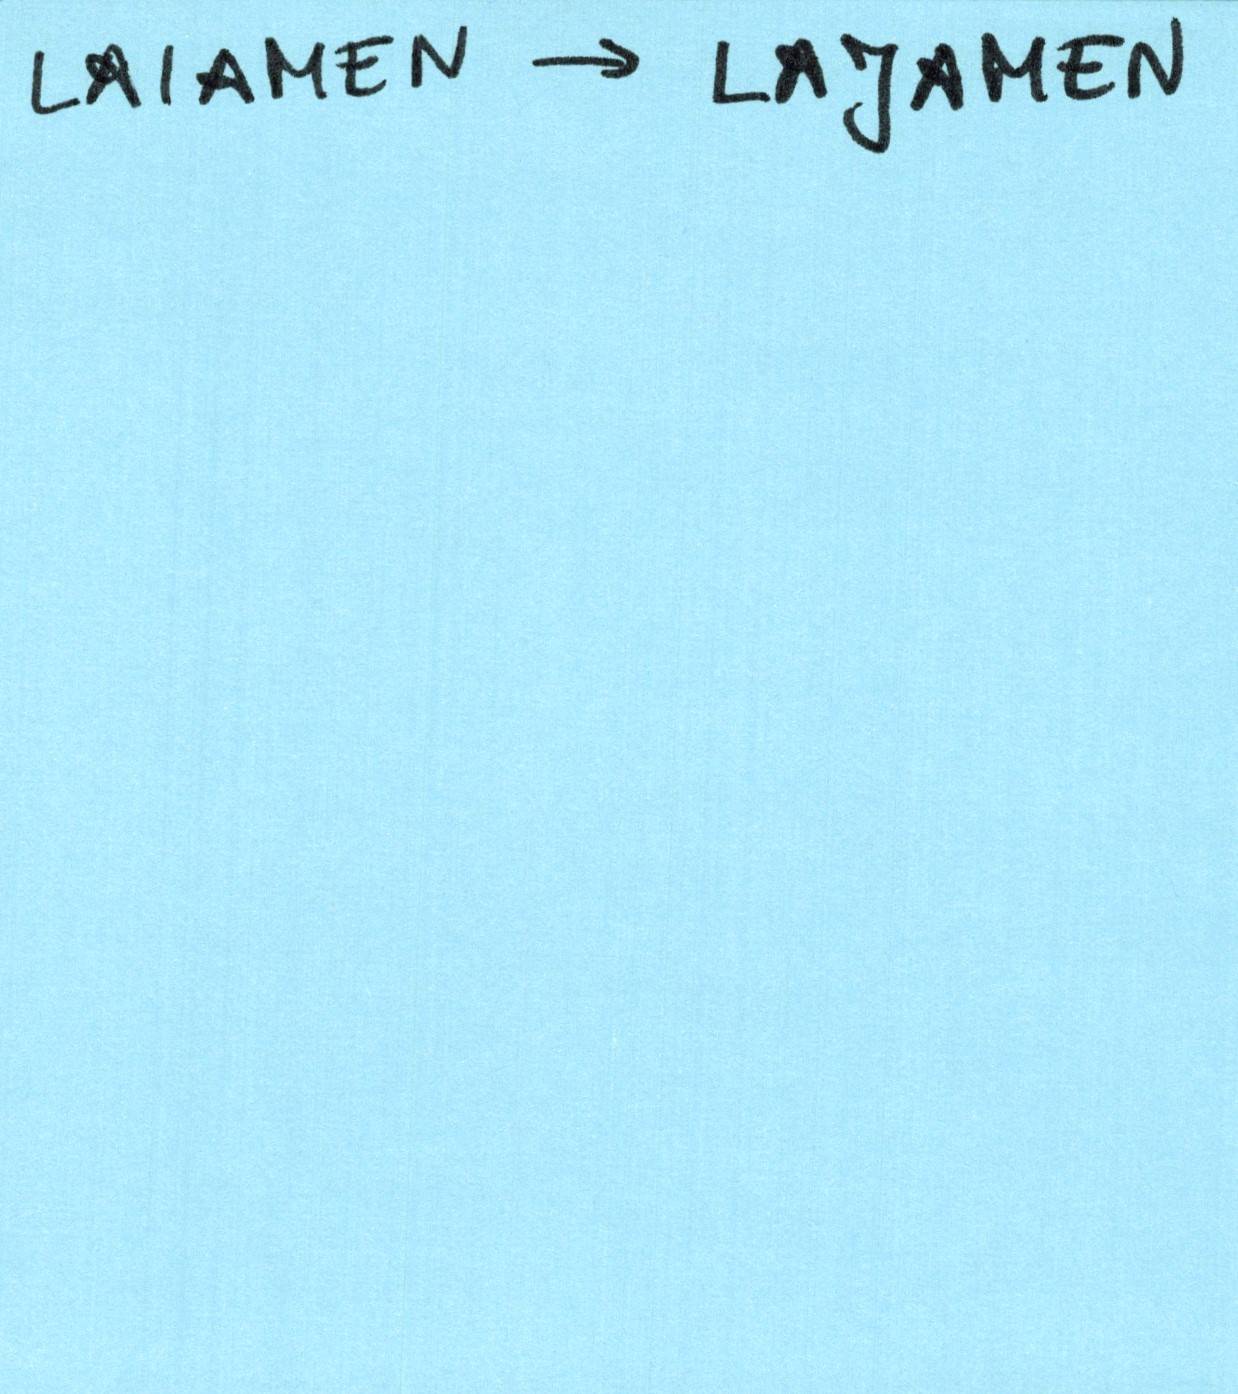 LAIAMEN → LAJAMEN